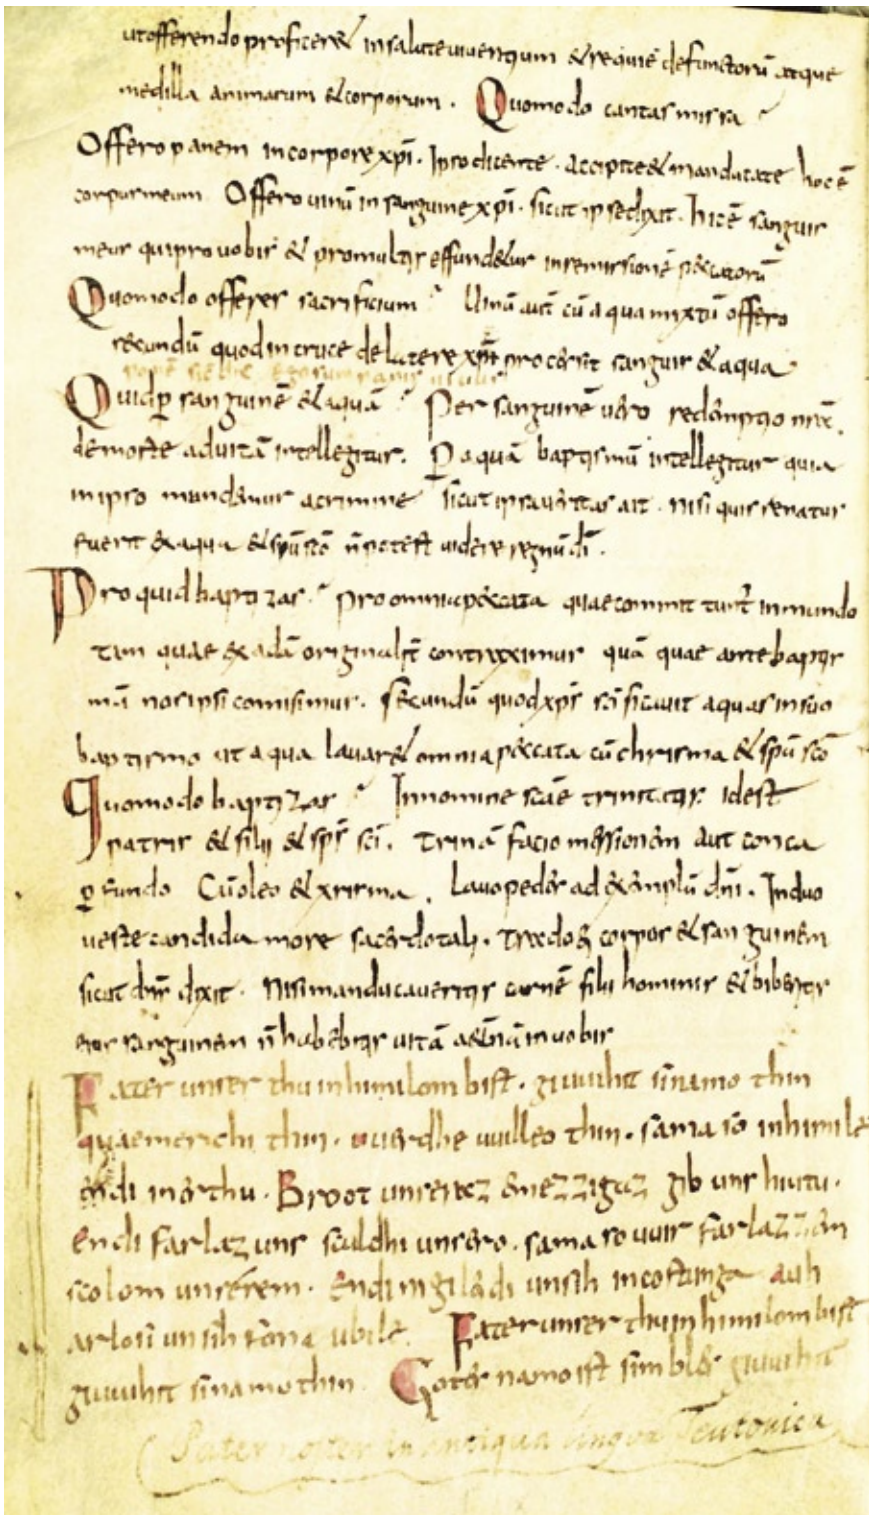 ut offerendo proficeret in salute viventium & requie defunctorū atque
medilla animarum & corporum. Quomodo cantas missa
Offero panem in corpore xp̄i. Ipso dicente. Accipite & manducate hoc ē
corpus meum Offero vinū in sanguine xp̄i. sicut ipse dixit. hic ē sanguis
meus qui pro vobis & pro multis effundetur in remissionē peccatorū
Quomodo offeres sacrificium Vinū aut̄ cū aqua mixtū offero
secundū quod in cruce de latere xp̄i processit sanguis & aqua
Quid p̄ sanguinē & aquā Per sanguinē vero redemptio nr̄a
de morte ad vitā intellegitur. P aquā baptismū intellegitur quia
in ipso mundemur a crimine sicut ipsa veritas ait. nisi quis renatus
fuerit ex aqua & spū sc̄o n̄ potest videre regnū dī.
Pro quid baptizas Pro omnia peccata quae committunt̄ in mundo
tam quae ex adā originalit̄ contraximus quā quae ante baptis
mā nos ipsi comisimus. secundū quod xp̄s sc̄ificavit aquas in suo
baptismo ut aqua lavaret omnia peccata cū chrisma & spū sc̄o
Quomodo baptizas In nomine sc̄ae trinitatis. id est
patris & filii & sp̄s sc̄i. Trinā facio mersionem aut conca
p̄fundo Cū oleo & xrisma. Lavo pedes ad exemplū dn̄i. Induo
veste candida more sacerdotali. Trado ei corpus & sanguinem
sicut dn̄s dixit. Nisi manducaveritis carnē filii hominis & biberitis
eius sanguinem n̄ habebitis vitā aet̄nā in vobis
Fater unser thu in himilom bist. giuuihit si namo thin
quaeme richi thin. uuerdhe uuilleo thin. sama so in himile
endi in erthu. Broot unseraz emezzigaz gib uns hiutu.
endi farlaz uns sculdhi unsero. sama so uuir farlazzem
scolom unserem. endi ni gileidi unsih in costunga auh
arlosi unsih fona ubile. Fater unser thu in himilom bist
giuuihit si namo thin. Gotes namo ist simbles giuuihit
Pater noster in antiqua lingua Teutonica